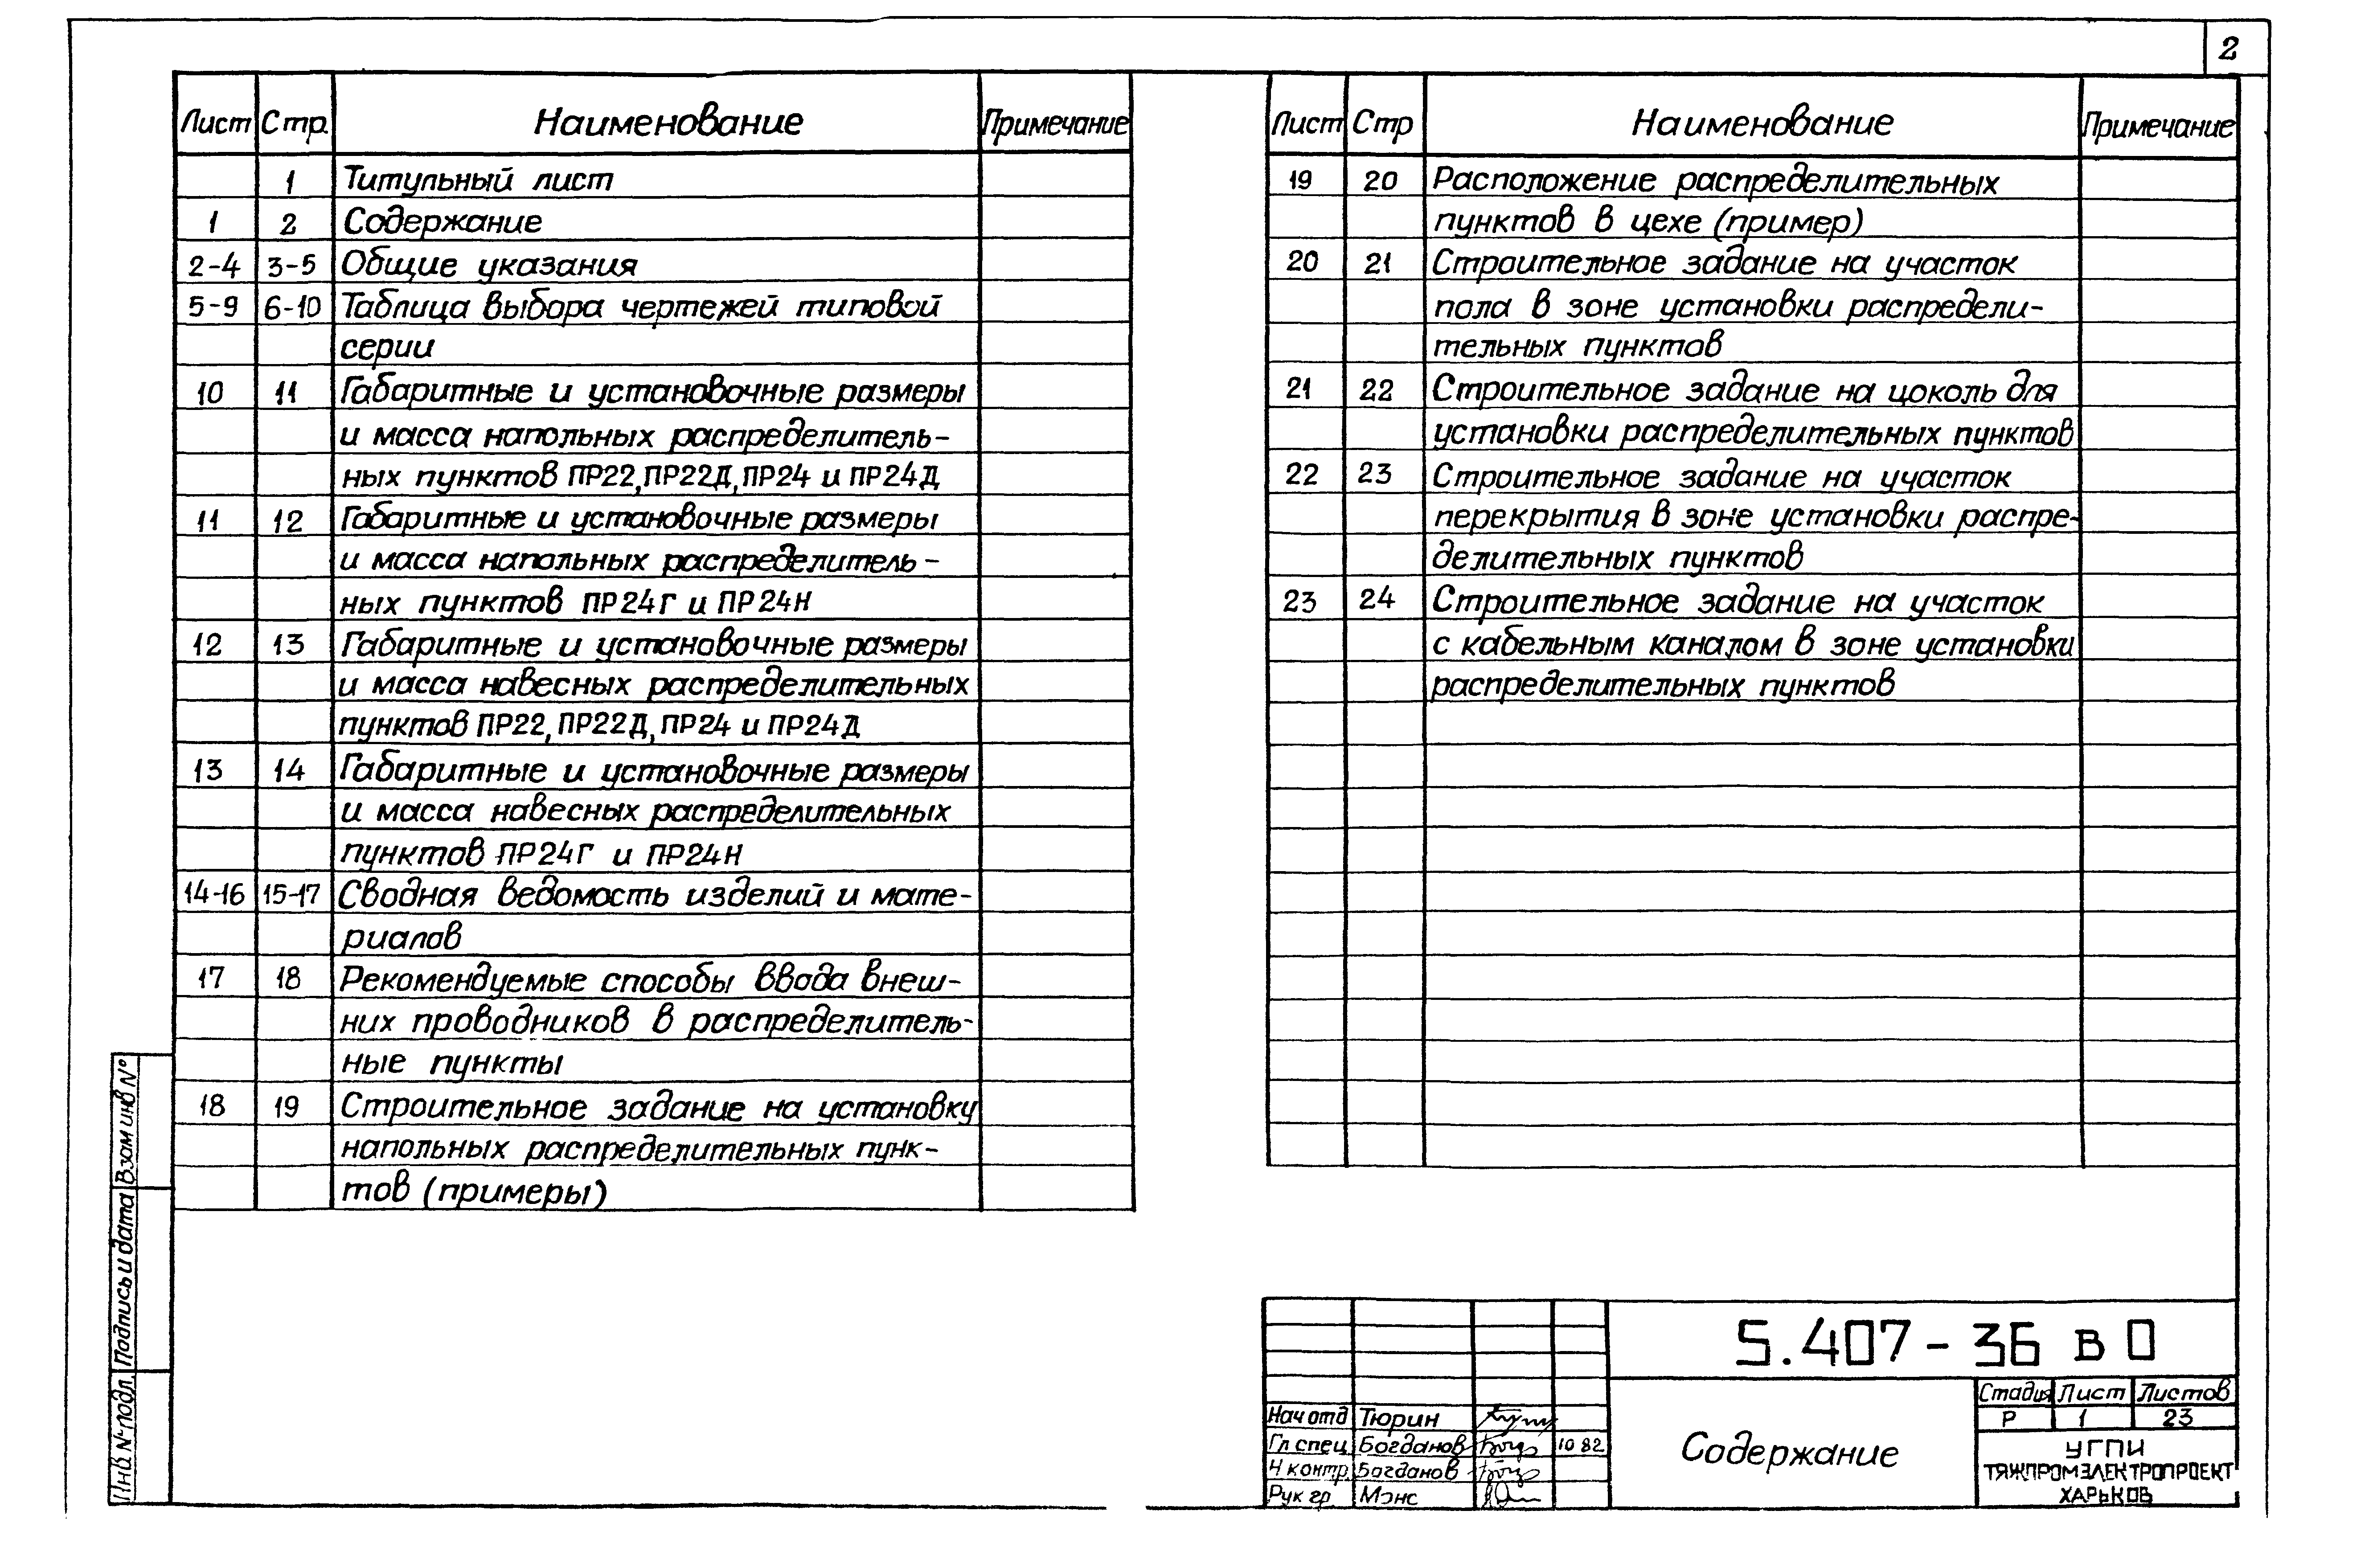 2
Лист Стр. Наименование Примечание
1 Титульный лист
1 2 Содержание
2-4 3-5 Общие указания
5-9 6-10 Таблица выбора чертежей типовой
серии
10 11 Габаритные и установочные размеры
и масса напольных распределитель-
ных пунктов ПР22, ПР22Д, ПР24 и ПР24Д
11 12 Габаритные и установочные размеры
и масса напольных распределитель-
ных пунктов ПР24Г и ПР24Н
12 13 Габаритные и установочные размеры
и масса навесных распределительных
пунктов ПР22, ПР22Д, ПР24 и ПР24Д
13 14 Габаритные и установочные размеры
и масса навесных распределительных
пунктов ПР24Г и ПР24Н
14-16 15-17 Сводная ведомость изделий и мате-
риалов
17 18 Рекомендуемые способы ввода внеш-
них проводников в распределитель-
ные пункты
18 19 Строительное задание на установку
напольных распределительных пунк-
тов (примеры)
Лист Стр Наименование Примечание
19 20 Расположение распределительных
пунктов в цехе (пример)
20 21 Строительное задание на участок
пола в зоне установки распредели-
тельных пунктов
21 22 Строительное задание на цоколь для
установки распределительных пунктов
22 23 Строительное задание на участок
перекрытия в зоне установки распре-
делительных пунктов
23 24 Строительное задание на участок
с кабельным каналом в зоне установки
распределительных пунктов
Взам инв N°
Подпись и дата
Инв N подл.
5.407-36 в 0
Нач отд Тюрин
Гл спец Богданов 10 82
Н контр Богданов
Рук гр. Мэнс
Содержание
Стадия Лист Листов
Р 1 23
УГПИ
ТЯЖПРОМЭЛЕКТРОПРОЕКТ
ХАРЬКОВ